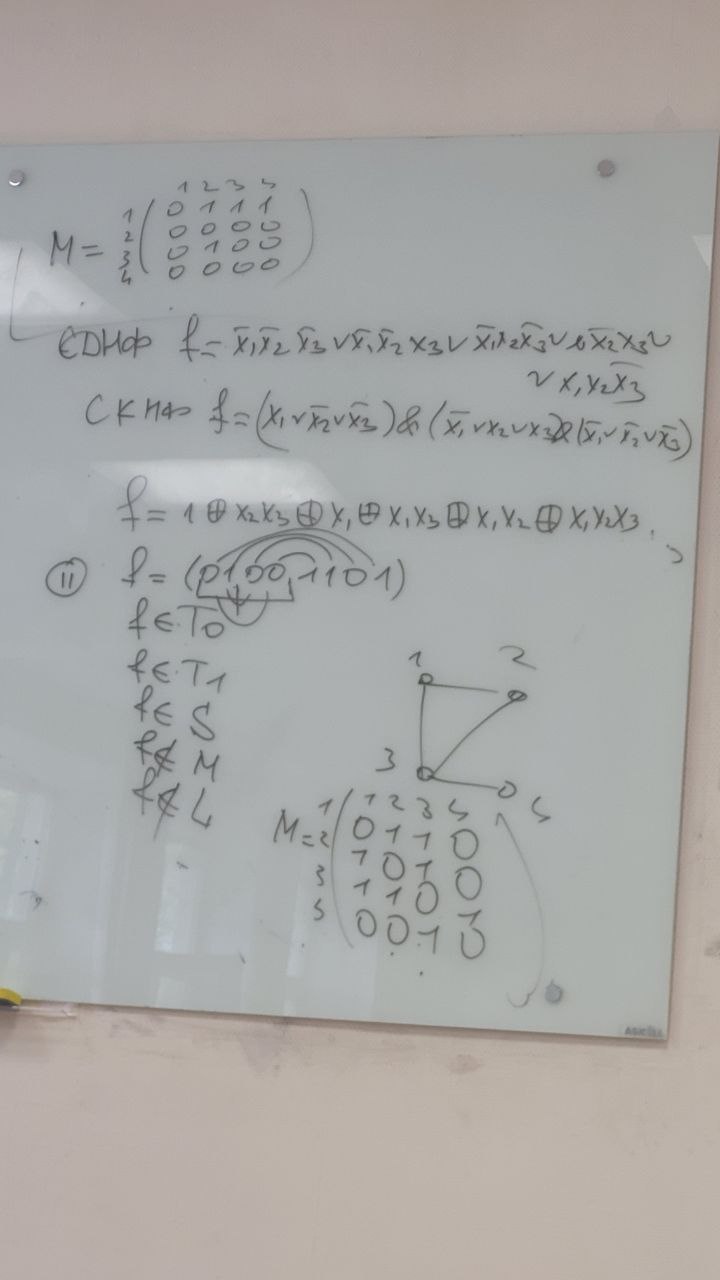 1 2 3 4
M = 1 ( 0 1 1 1 )
2 0 0 0 0
3 0 1 0 0
4 0 0 0 0
СДНФ f = x̄₁x̄₂ x̄₃ ∨ x̄₁x̄₂ x₃ ∨ x̄₁x₂x̄₃ ∨ x̄₂x₃ ∨
∨ x₁x₂x̄₃
СКНФ f = (x₁ ∨ x̄₂ ∨ x̄₃) & (x̄₁ ∨ x₂ ∨ x₃) & (x̄₁ ∨ x̄₂ ∨ x̄₃)
f = 1 ⊕ x₂x₃ ⊕ x₁ ⊕ x₁x₃ ⊕ x₁x₂ ⊕ x₁x₂x₃
11 f = (0100,1101)
f ∈ T₀
f ∈ T₁
f ∈ S
f ∉ M
f ∉ L
1 2
3 4
1 2 3 4
M = 1 ( 0 1 1 0 )
2 1 0 1 0
3 1 1 0 1
4 0 0 1 0